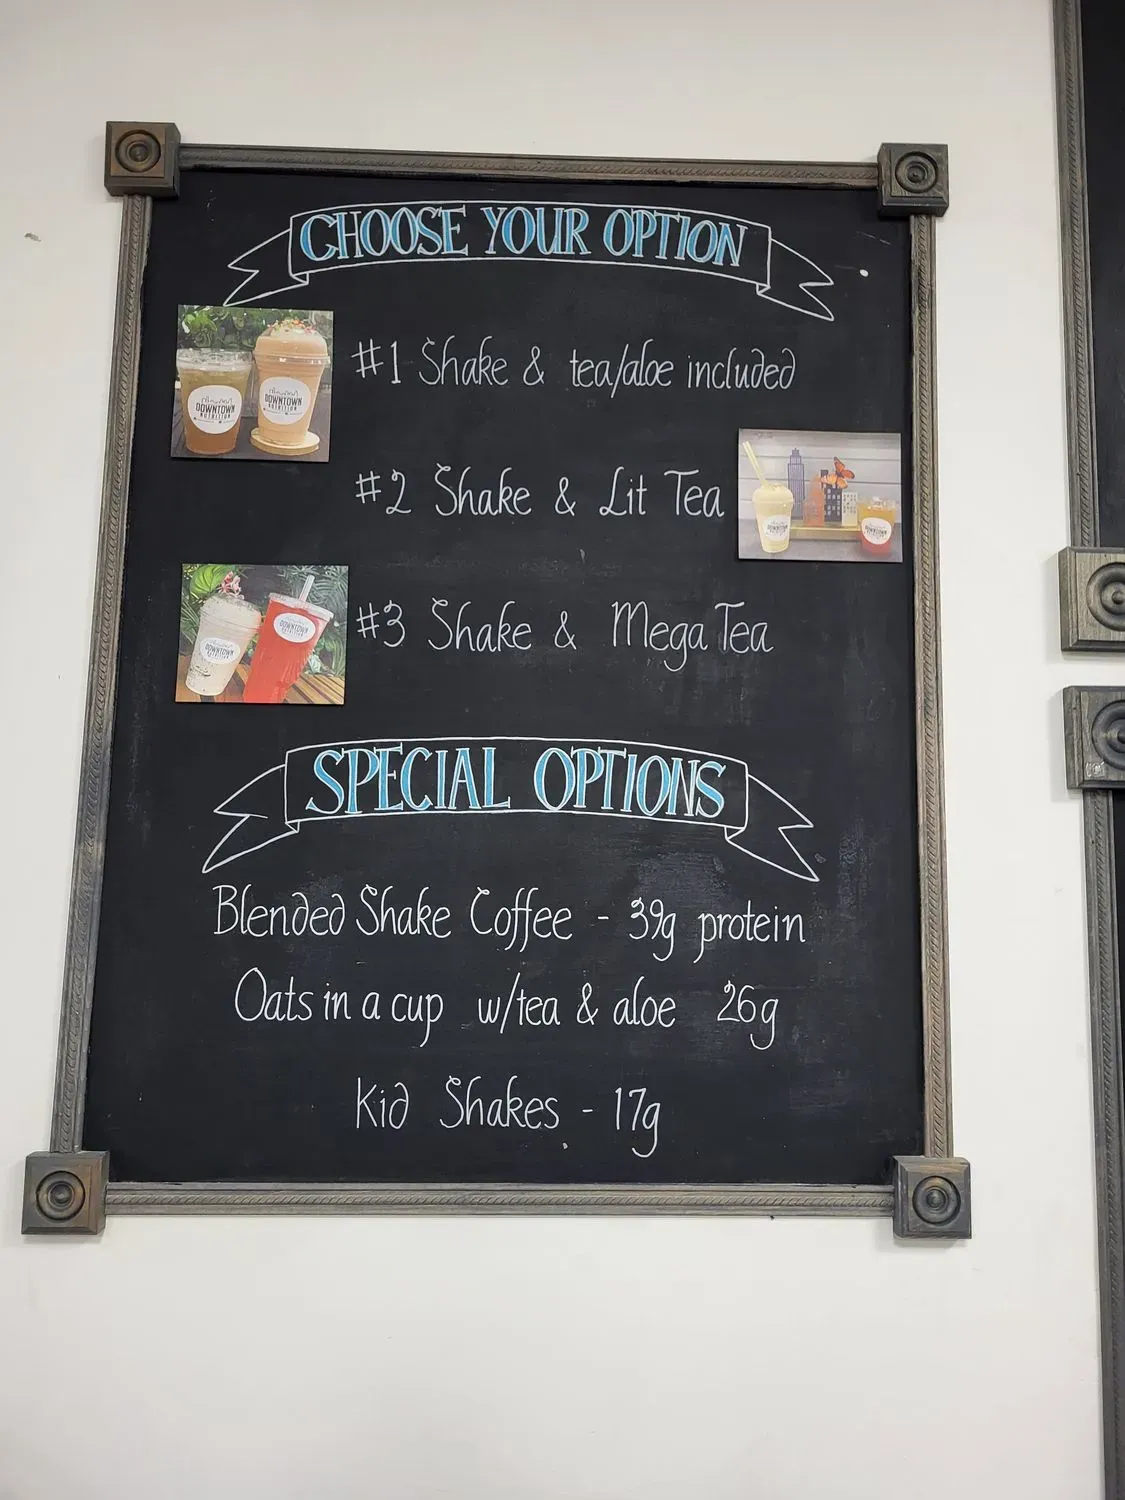 CHOOSE YOUR OPTION
#1 Shake & tea/aloe included
DOWNTOWN
NUTRITION
DOWNTOWN
NUTRITION
#2 Shake & Lit Tea
DOWNTOWN
DOWNTOWN
#3 Shake & Mega Tea
DOWNTOWN
DOWNTOWN
SPECIAL OPTIONS
Blended Shake Coffee - 39g protein
Oats in a cup w/tea & aloe 26g
Kid Shakes - 17g